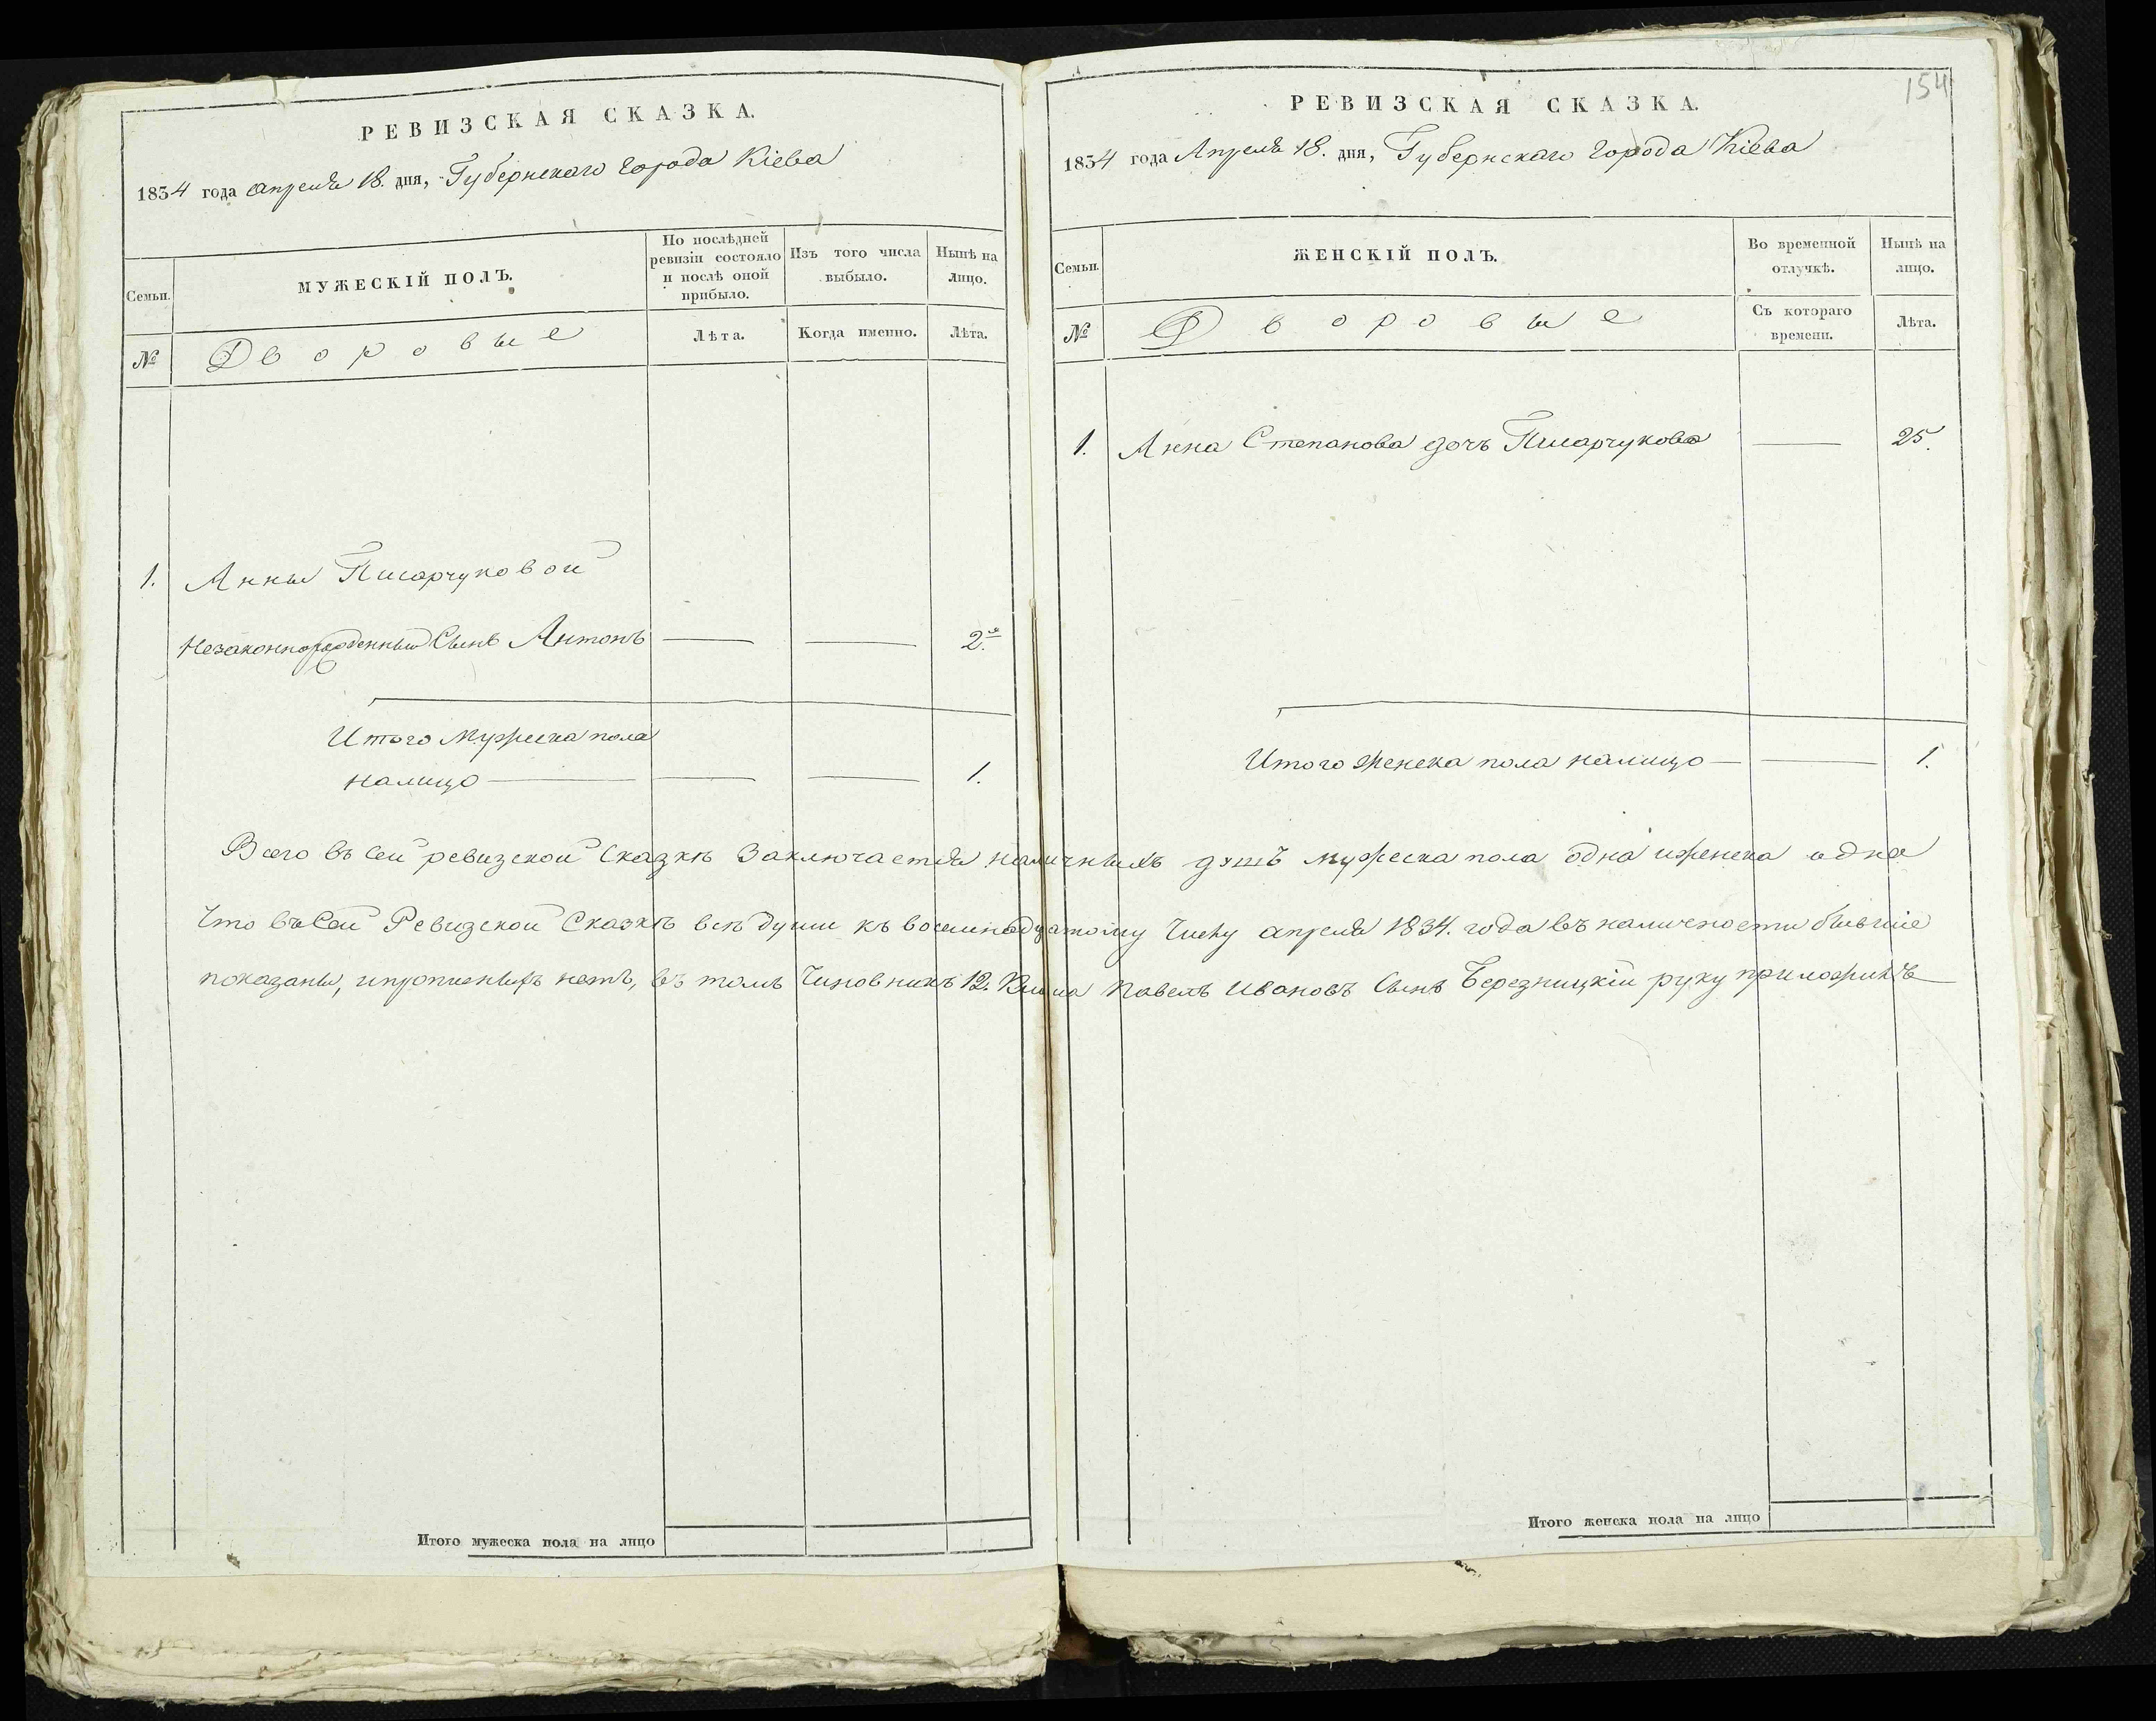 РЕВИЗСКАЯ СКАЗКА.
1834 года апреля 18. дня, Губернскаго города Кіева
Семьи.
МУЖЕСКІЙ ПОЛЪ.
По послѣдней ревизіи состояло и послѣ оной прибыло.
Изъ того числа выбыло.
Нынѣ на лицо.
№
Дворовые
Лѣта.
Когда именно.
Лѣта.
1. Анны Писарчуковой
Незаконнорожденный Сынъ Антонъ — — 2.
Итого Мужеска пола
налицо — — — 1.
Итого мужеска пола на лицо
154
РЕВИЗСКАЯ СКАЗКА.
1834 года Апреля 18. дня, Губернскаго города Кіева
Семьи.
ЖЕНСКІЙ ПОЛЪ.
Во временной отлучкѣ.
Нынѣ на лицо.
№
Дворовые
Съ котораго времени.
Лѣта.
1. Анна Степанова дочь Писарчукова — 25.
Итого женска пола налицо — — 1.
Всего въ сей ревизской Сказкѣ Заключается наличныхъ душъ мужеска пола одна и женска одна
Что въ Сей Ревизской Сказкѣ всѣ души къ восемнадцатому Числу апреля 1834. года въ наличности бывшіе
показаны, и прописныхъ нетъ, въ томъ Чиновникъ 12. Класа Павелъ Ивановъ Сынъ Березницкій руку приложилъ
Итого женска пола на лицо